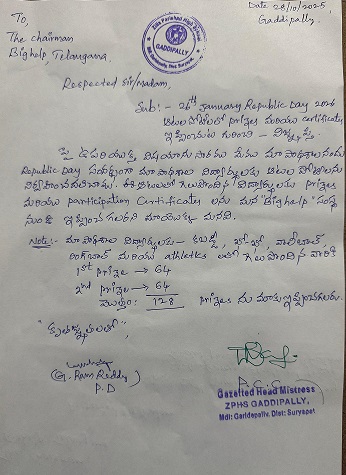 Date 28/10/2025,
Gaddipally.
To,
The chairman
Bighelp, Telangana.
Zilla Parishad High School
GADDIPALLY
Respected Sir/madam,
Sub:- 26th January Republic Day 2026
ఆటల పోటీలలో prizes మరియు certificates
ఇప్పించుట గురించి - విజ్ఞప్తి.
పై ఉదహరించిన విషయానుసారముగా మేము మా పాఠశాల నందు
Republic Day సందర్భంగా మా పాఠశాల విద్యార్థులకు ఆటల పోటీలను
నిర్వహించుచున్నాము. ఈ ఆటలలో గెలుపొందిన విద్యార్థులకు prizes
మరియు participation Certificates లను మన "Bighelp" సంస్థ
నుండి ఇప్పించగలరని మా యొక్క మనవి.
Note:- మా పాఠశాల విద్యార్థులకు - కబడ్డీ, ఖో-ఖో, వాలీబాల్
మరియు athletics లలో గెలుపొందిన వారికి
1st prize → 64
2nd prize → 64
మొత్తం: 128 prizes ను మాకు ఇప్పించగలరు.
"కృతజ్ఞతలతో",
(G. Ram Reddy)
P.D
Gazetted Head Mistress
ZPHS GADDIPALLY,
Mdl: Garidepally, Dist: Suryapet